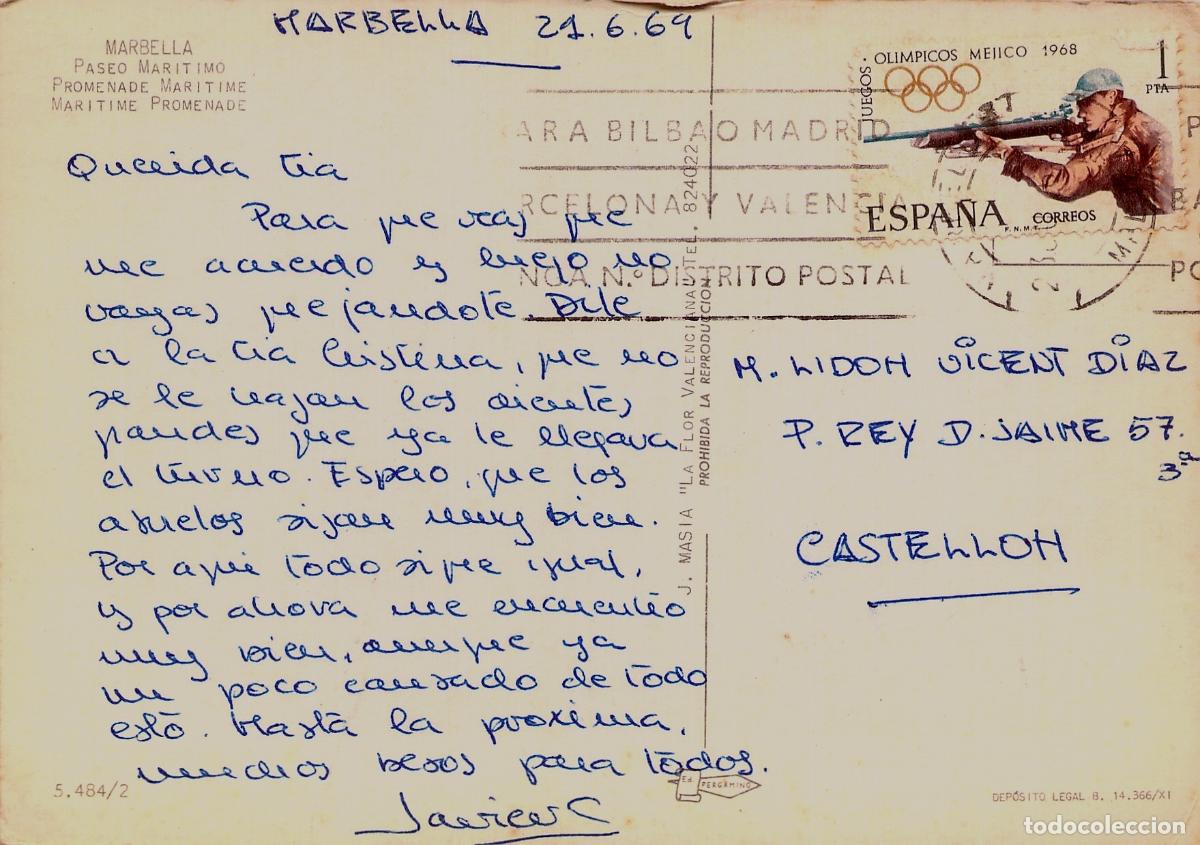 MARBELLA 21.6.69
MARBELLA
PASEO MARITIMO
PROMENADE MARITIME
MARITIME PROMENADE
Querida tia
Para que veas que
me acuerdo y luego no
vayas quejandote. Dile
a la tia Cristina, que no
se le vayan los dientes
grandes que ya le llegava
el turno. Espero, que los
abuelos sigan muy bien.
Por aqui todo sigue igual,
y por ahora me encuentro
muy bien, aunque ya
un poco cansado de todo
esto. Hasta la proxima,
muchos besos para todos.
Javier C
5.484/2
J. MASIA "LA FLOR VALENCIANA" TEL. 824022
PROHIBIDA LA REPRODUCCION
Ed. PERGAMINO
JUEGOS · OLIMPICOS MEJICO 1968
1
PTA
ESPAÑA CORREOS
F.N.M.T.
ARA BILBAO MADRID
RCELONA Y VALENCIA
NGA N.º DISTRITO POSTAL
P
BA
PO
M. LIDON VICENT DÍAZ
P. REY D. JAIME 57.
3.ª
CASTELLON
DEPÓSITO LEGAL B. 14.366/XI
todocoleccion